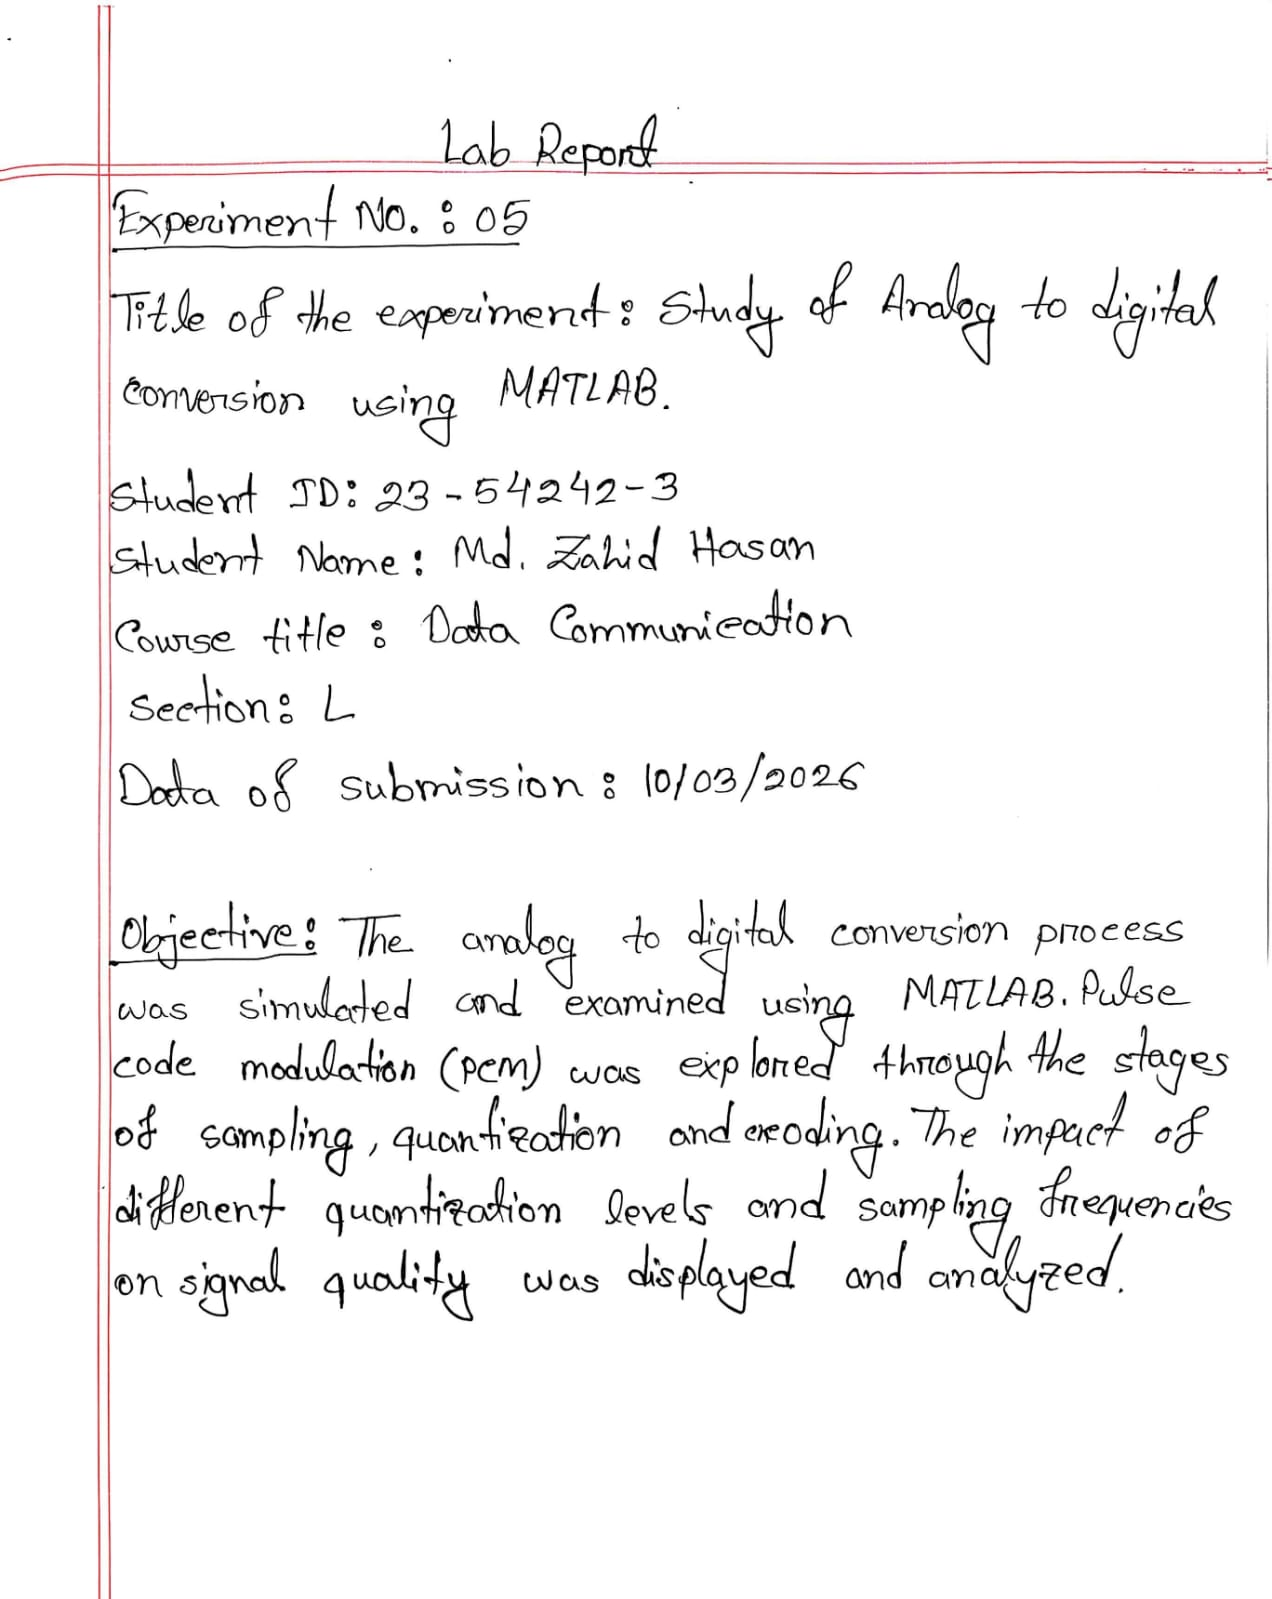 Lab Report
Experiment No. : 05
Title of the experiment: Study of Analog to digital
conversion using MATLAB.
Student ID: 23-54242-3
Student Name: Md. Zahid Hasan
Course title : Data Communication
Section: L
Data of submission : 10/03/2026
Objective: The analog to digital conversion process
was simulated and examined using MATLAB. Pulse
code modulation (PCM) was explored through the stages
of sampling, quantization and encoding. The impact of
different quantization levels and sampling frequencies
on signal quality was displayed and analyzed.